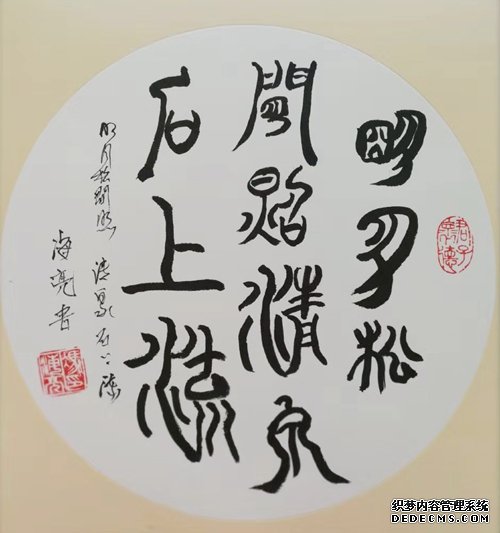 明月松
間照清泉
石上流
明月松間照 清泉石上流
海亮書
织梦内容管理系统
DEDECMS.COM